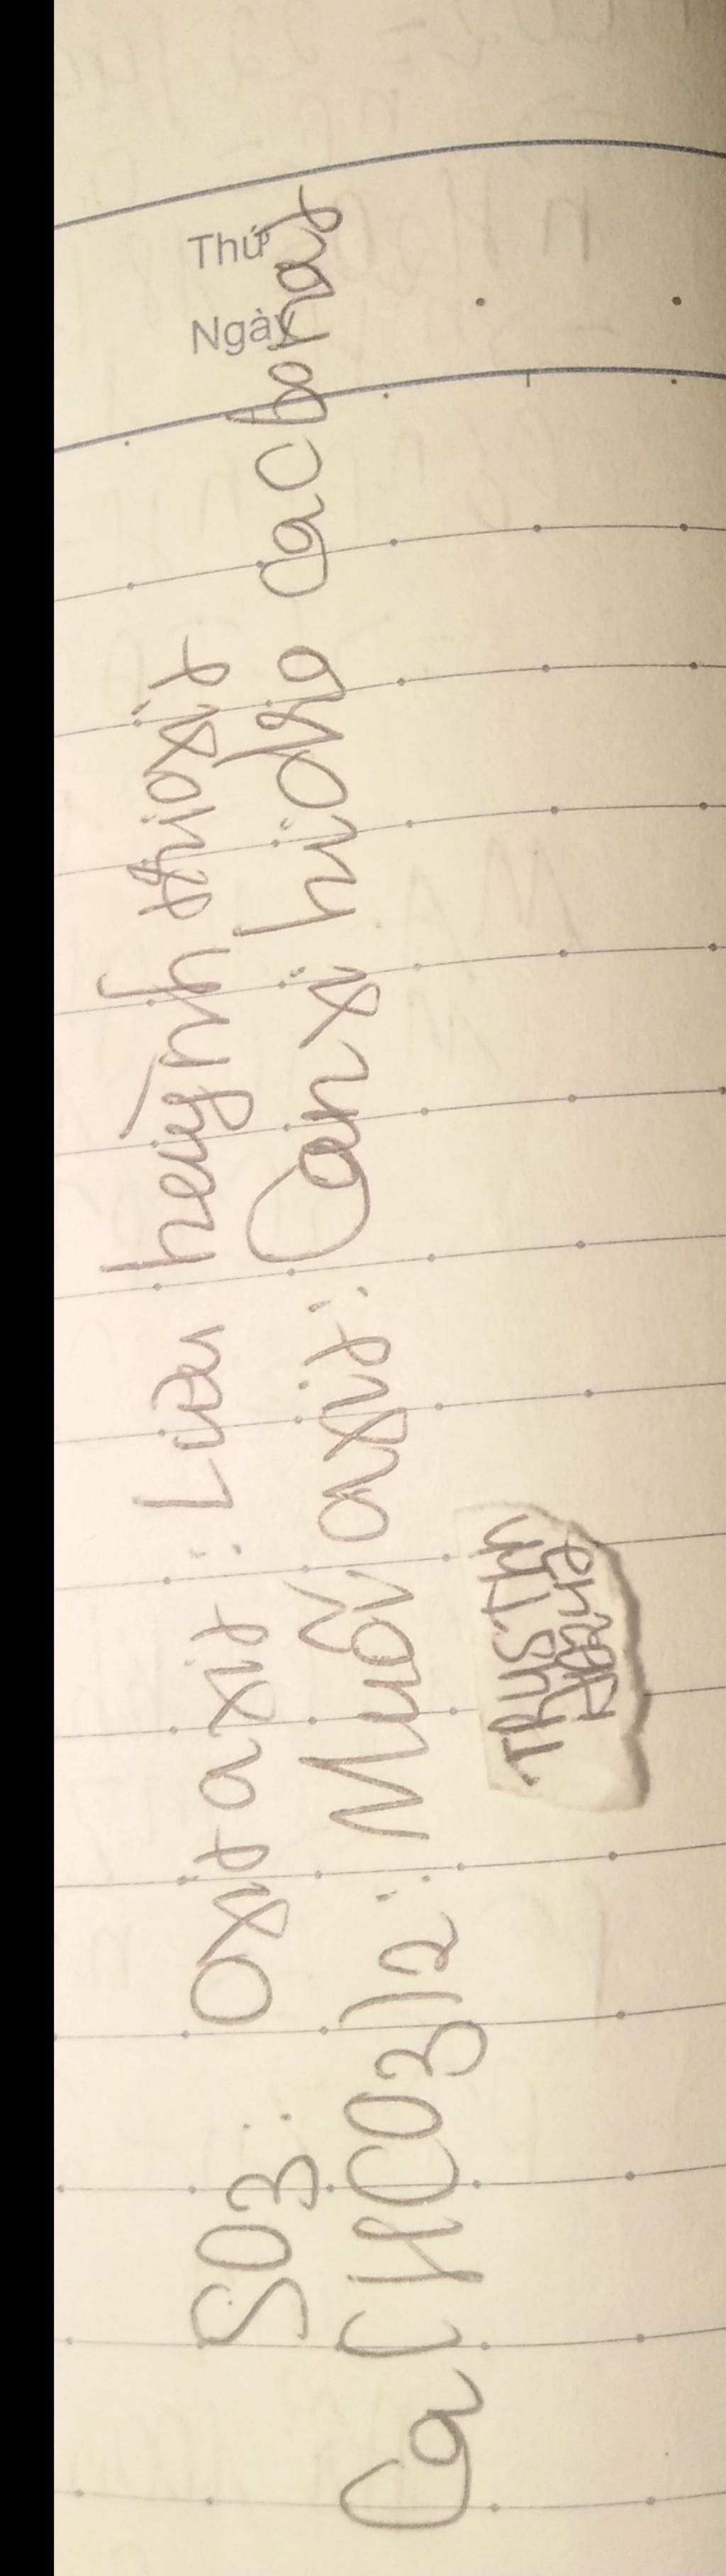 Thứ
Ngày
SO3: Oxit axit: Lưu heuỳnh thioxit
Ca(HCO3)2: Muối axit: Canxi hidro cacbonat